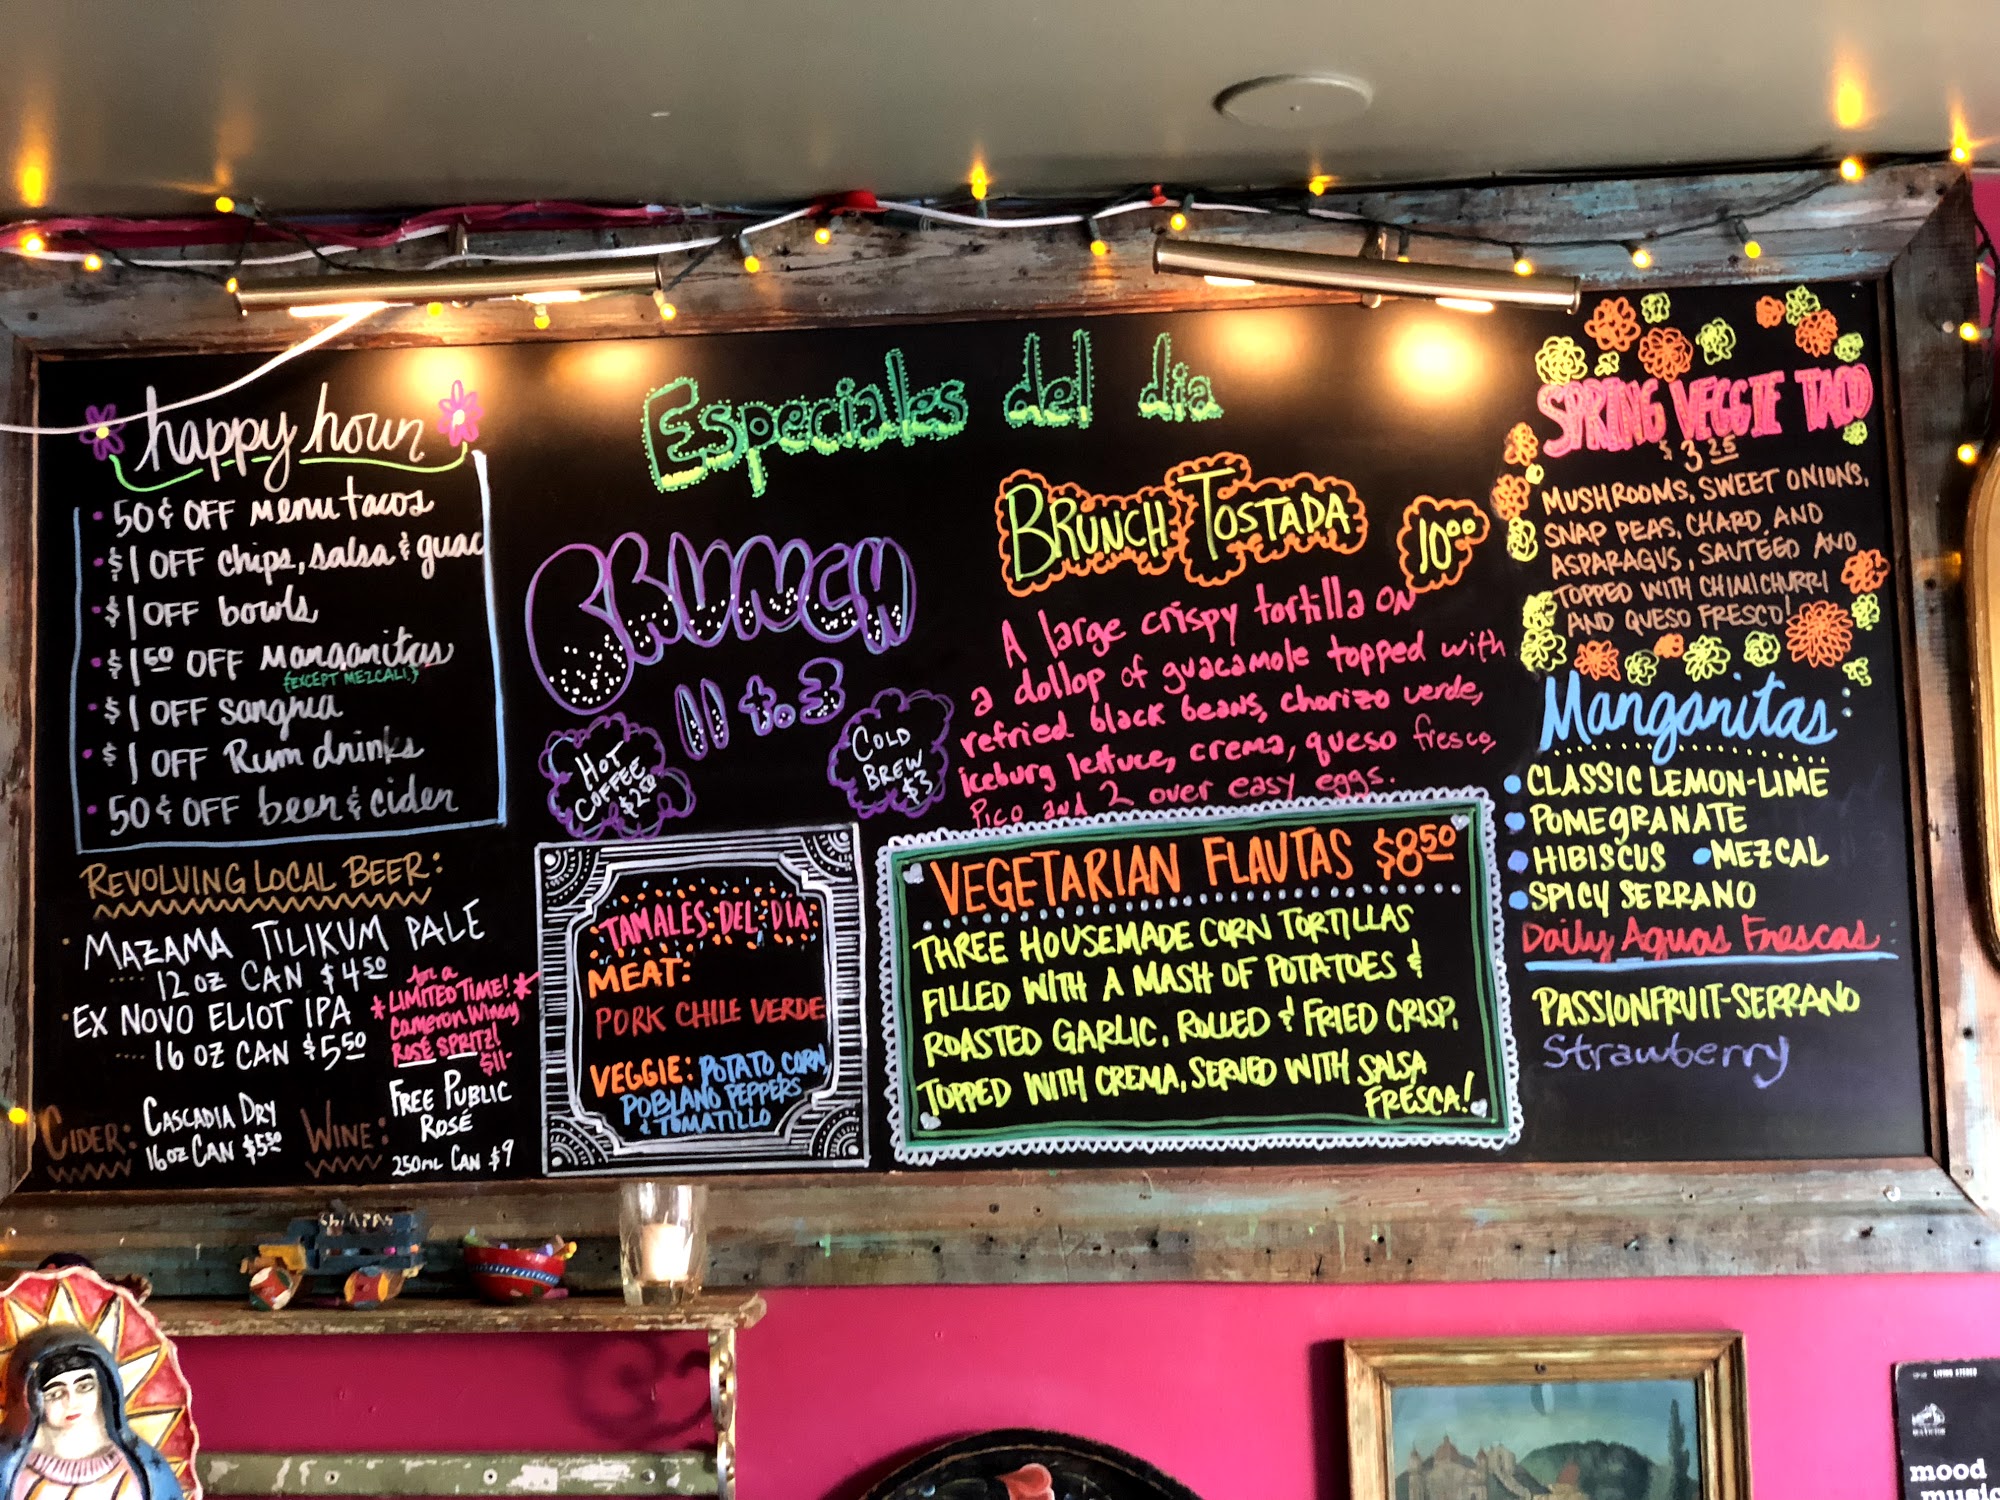 happy hour
50¢ OFF menu tacos
$1 OFF chips, salsa & guac
$1 OFF bowls
$1 50 OFF Marganitas
{EXCEPT MEZCALI.}
$1 OFF sangria
$1 OFF Rum drinks
50¢ OFF beer & cider
REVOLVING LOCAL BEER:
MAZAMA TILIKUM PALE
12 OZ CAN $4 50
EX NOVO ELIOT IPA
16 OZ CAN $5 50
for a
*LIMITED TIME!*
Cameron Winery
ROSÉ SPRITZ!
$11-
CIDER:
CASCADIA DRY
16OZ CAN $5 50
WINE:
FREE PUBLIC
ROSÉ
250ML CAN $9
Especiales del dia
BRUNCH
11 to 3
HOT
COFFEE
$2 50
COLD
BREW
$3
BRUNCH TOSTADA
10 00
A large crispy tortilla on
a dollop of guacamole topped with
refried black beans, chorizo verde,
iceburg lettuce, crema, queso fresco,
Pico and 2 over easy eggs.
TAMALES DEL DIA:
MEAT:
PORK CHILE VERDE
VEGGIE: POTATO CORN,
POBLANO PEPPERS
& TOMATILLO
VEGETARIAN FLAUTAS $8 50
THREE HOUSEMADE CORN TORTILLAS
FILLED WITH A MASH OF POTATOES &
ROASTED GARLIC, ROLLED & FRIED CRISP.
TOPPED WITH CREMA, SERVED WITH SALSA
FRESCA!
SPRING VEGGIE TACO
$3 25
MUSHROOMS, SWEET ONIONS,
SNAP PEAS, CHARD, AND
ASPARAGUS, SAUTÉED AND
TOPPED WITH CHIMICHURRI
AND QUESO FRESCO!
Marganitas:
CLASSIC LEMON-LIME
POMEGRANATE
HIBISCUS MEZCAL
SPICY SERRANO
Daily Aguas Frescas:
PASSIONFRUIT-SERRANO
Strawberry
CHIAPAS
LIVING STEREO
mood
music